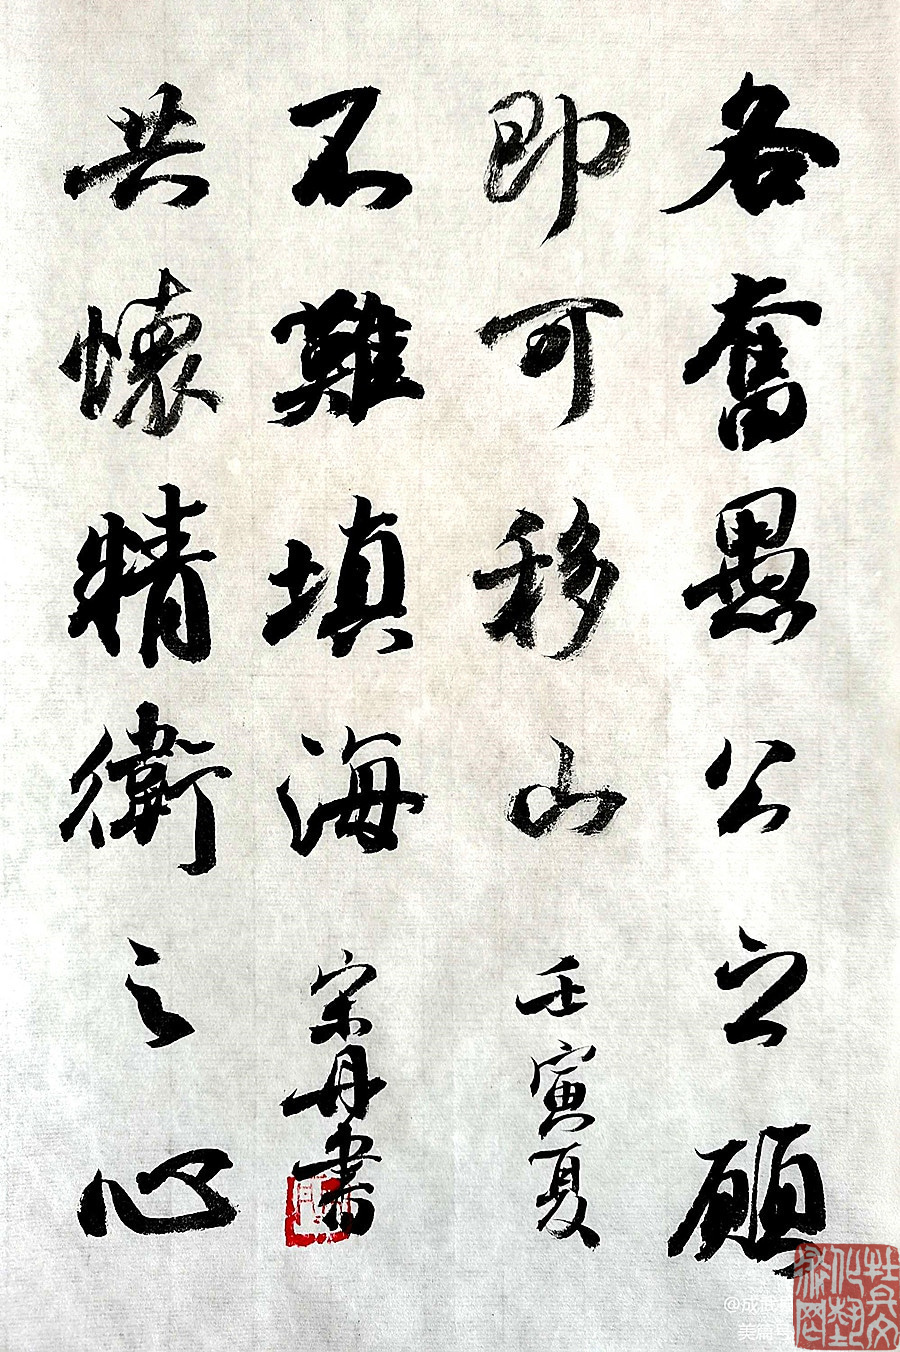 各奮愚公之願
即可移山
壬寅夏
共懷精衛之心
不難填海
宋丹書